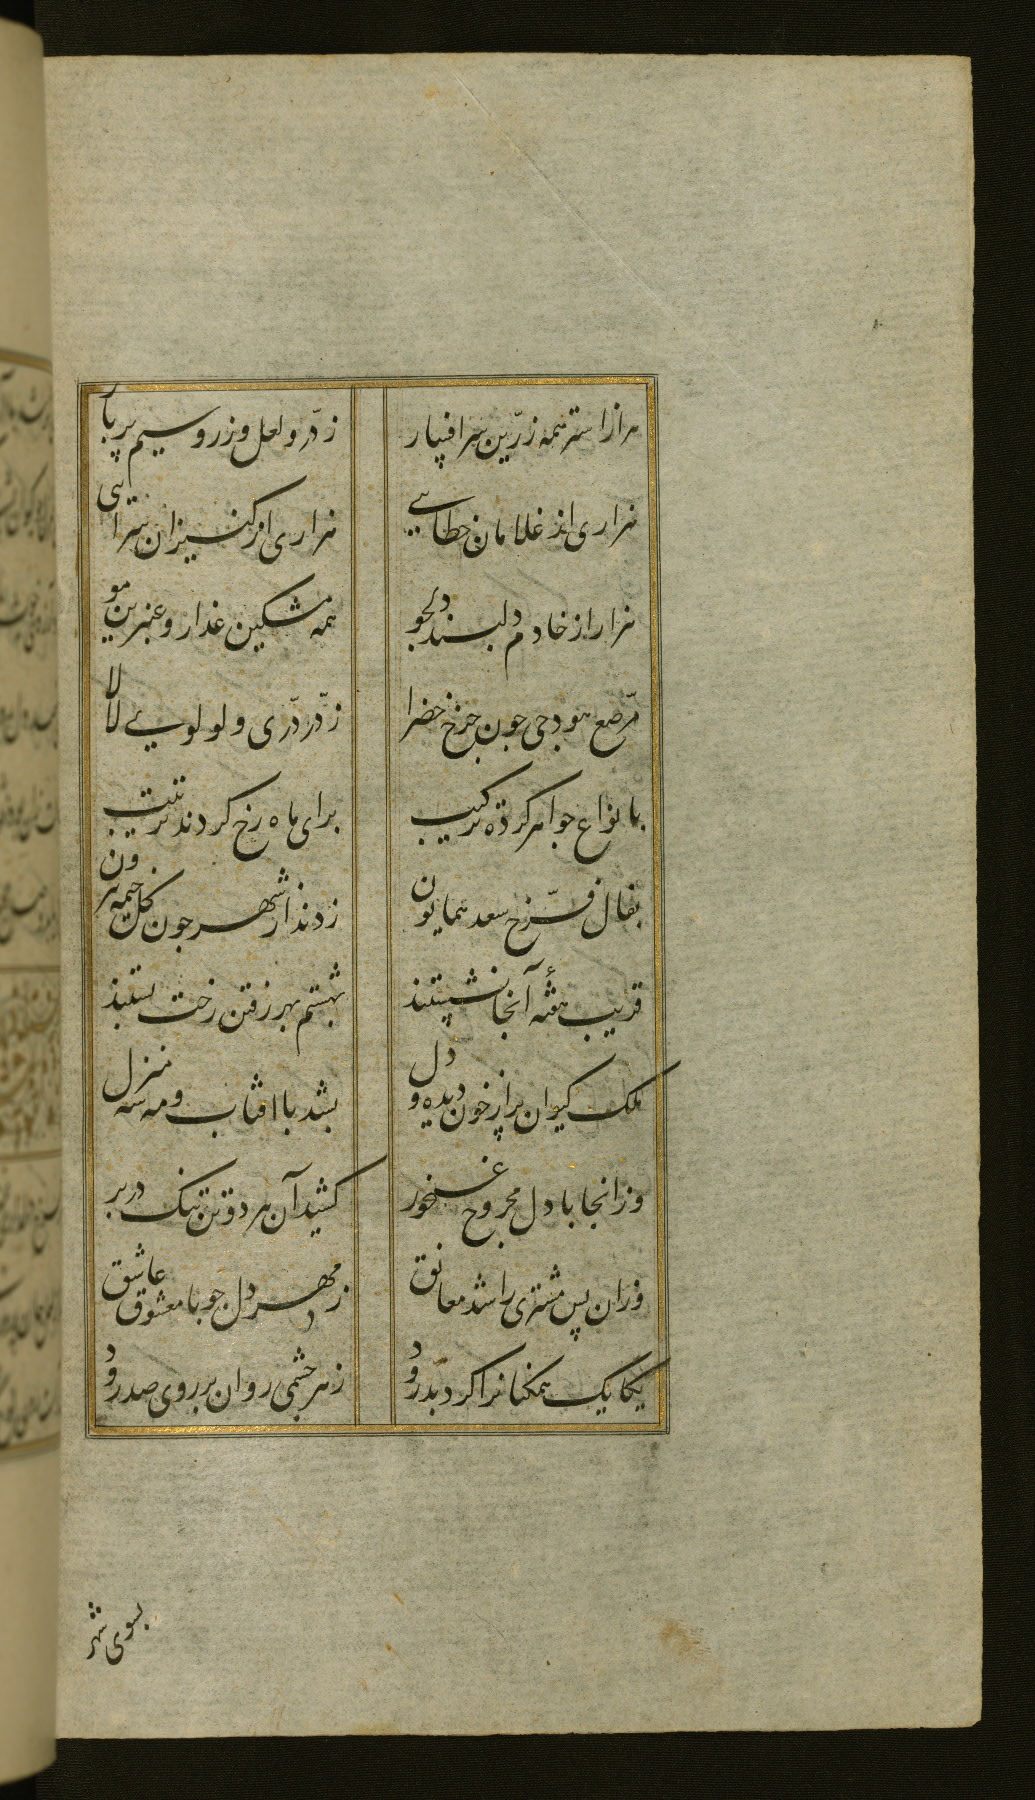 هزار استر همه زرّین سر افسار ز درّ و لعل و زر و سیم پر بار
هزاری از غلامان خطایی هزاری از کنیزان سرایی
هزار از خادم دلبند دلجو همه مشکین عذار و عنبرین مو
مرّصع هودجی چون چرخ خضرا ز درّ درّی و لولوی لالا
بانواع جواهر کرده ترکیب برای ماه رخ کردند ترتیب
بفال فرّخ سعد همایون زدند از شهر چون گل خیمه بیرون
قریب هفتهٔ آنجا نشستند بهشتم بهر رفتن رخت بستند
ملک کیوان پر از خون دیده و دل بشد با افتاب و مه سه منزل
وز انجا با دل مجروح غمخور کشید آن هر دو تن تنک در بر
وزان پس مشتری را شد معانق ز مهر دل چو با معشوق عاشق
یکایک همکنانرا کرد بدرود ز هر چشمی روان بر روی صد رود
بسوی شهر